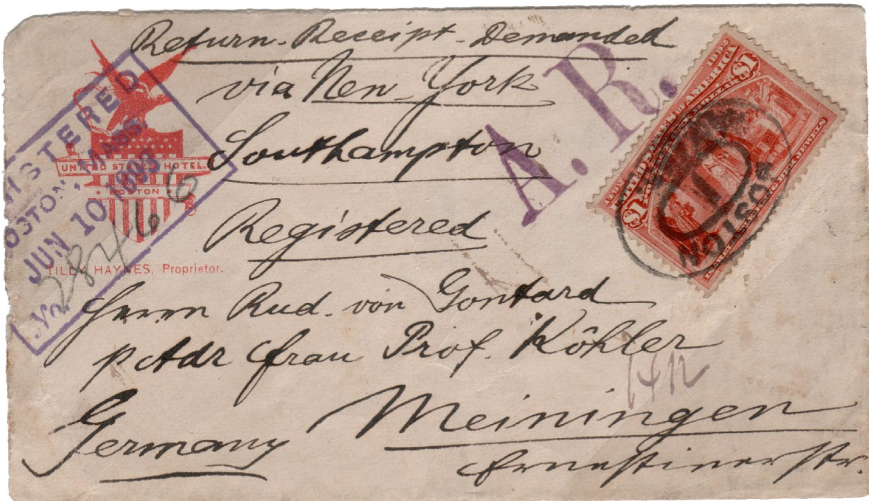 Return-Receipt-Demanded
via New-York
Southampton
Registered
Herrn Rud. von Gontard
p Adr Frau Prof. Köhler
Meiningen
Germany
Ernestinerstr.
A.R.
REGISTERED
BOSTON, MASS.
JUN 10 1893
No.
UNITED STATES HOTEL
BOSTON
TILLY HAYNES, Proprietor.
1492 1892
UNITED STATES OF AMERICA
$1 $1
BOSTON
1